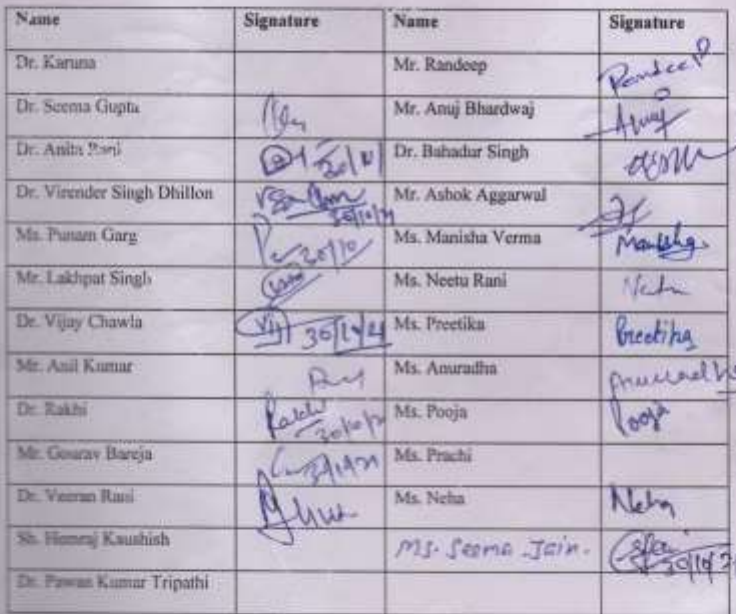 Name Signature Name Signature
Dr. Karuna Mr. Randeep Randeep
Dr. Seema Gupta Mr. Anuj Bhardwaj Anuj
Dr. Anita Rani 30/10 Dr. Bahadur Singh
Dr. Virender Singh Dhillon 30/10/21 Mr. Ashok Aggarwal
Ms. Punam Garg 30/10 Ms. Manisha Verma Manisha
Mr. Lakhpat Singh Ms. Neetu Rani
Dr. Vijay Chawla 30/10/21 Ms. Preetika Preetika
Mr. Anil Kumar Ms. Anuradha Anuradha
Dr. Rakhi Rakhi 30/10/21 Ms. Pooja Pooja
Mr. Gourav Bareja Ms. Prachi
Dr. Veeran Rani Ms. Neha Neha
Sh. Hemraj Kaushish Ms. Seema Jain. 30/10/21
Dr. Pawan Kumar Tripathi